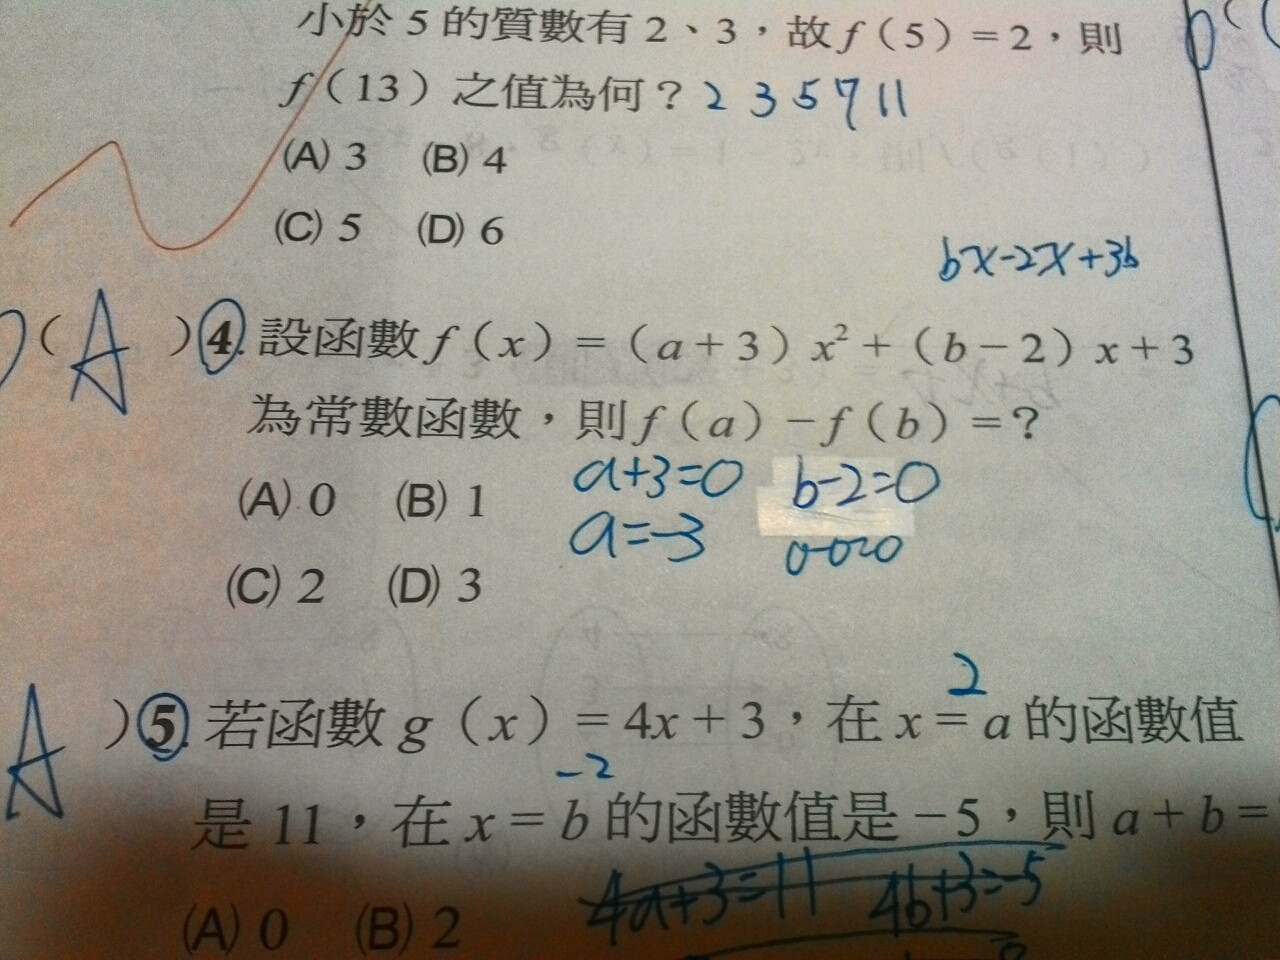 小於 5 的質數有 2、3，故 f（5）＝2，則
f（13）之值為何？2 3 5 7 11
(A) 3 (B) 4
(C) 5 (D) 6
bx-2x+3b
（ A ）4. 設函數 f（x）＝（a＋3）x²＋（b－2）x＋3
為常數函數，則 f（a）－f（b）＝？
a+3=0 b-2=0
(A) 0 (B) 1
a=-3
(C) 2 (D) 3
2
A ）5. 若函數 g（x）＝4x＋3，在 x＝a 的函數值
-2
是 11，在 x＝b 的函數值是－5，則 a＋b＝
4a+3=11 4b+3=-5
(A) 0 (B) 2